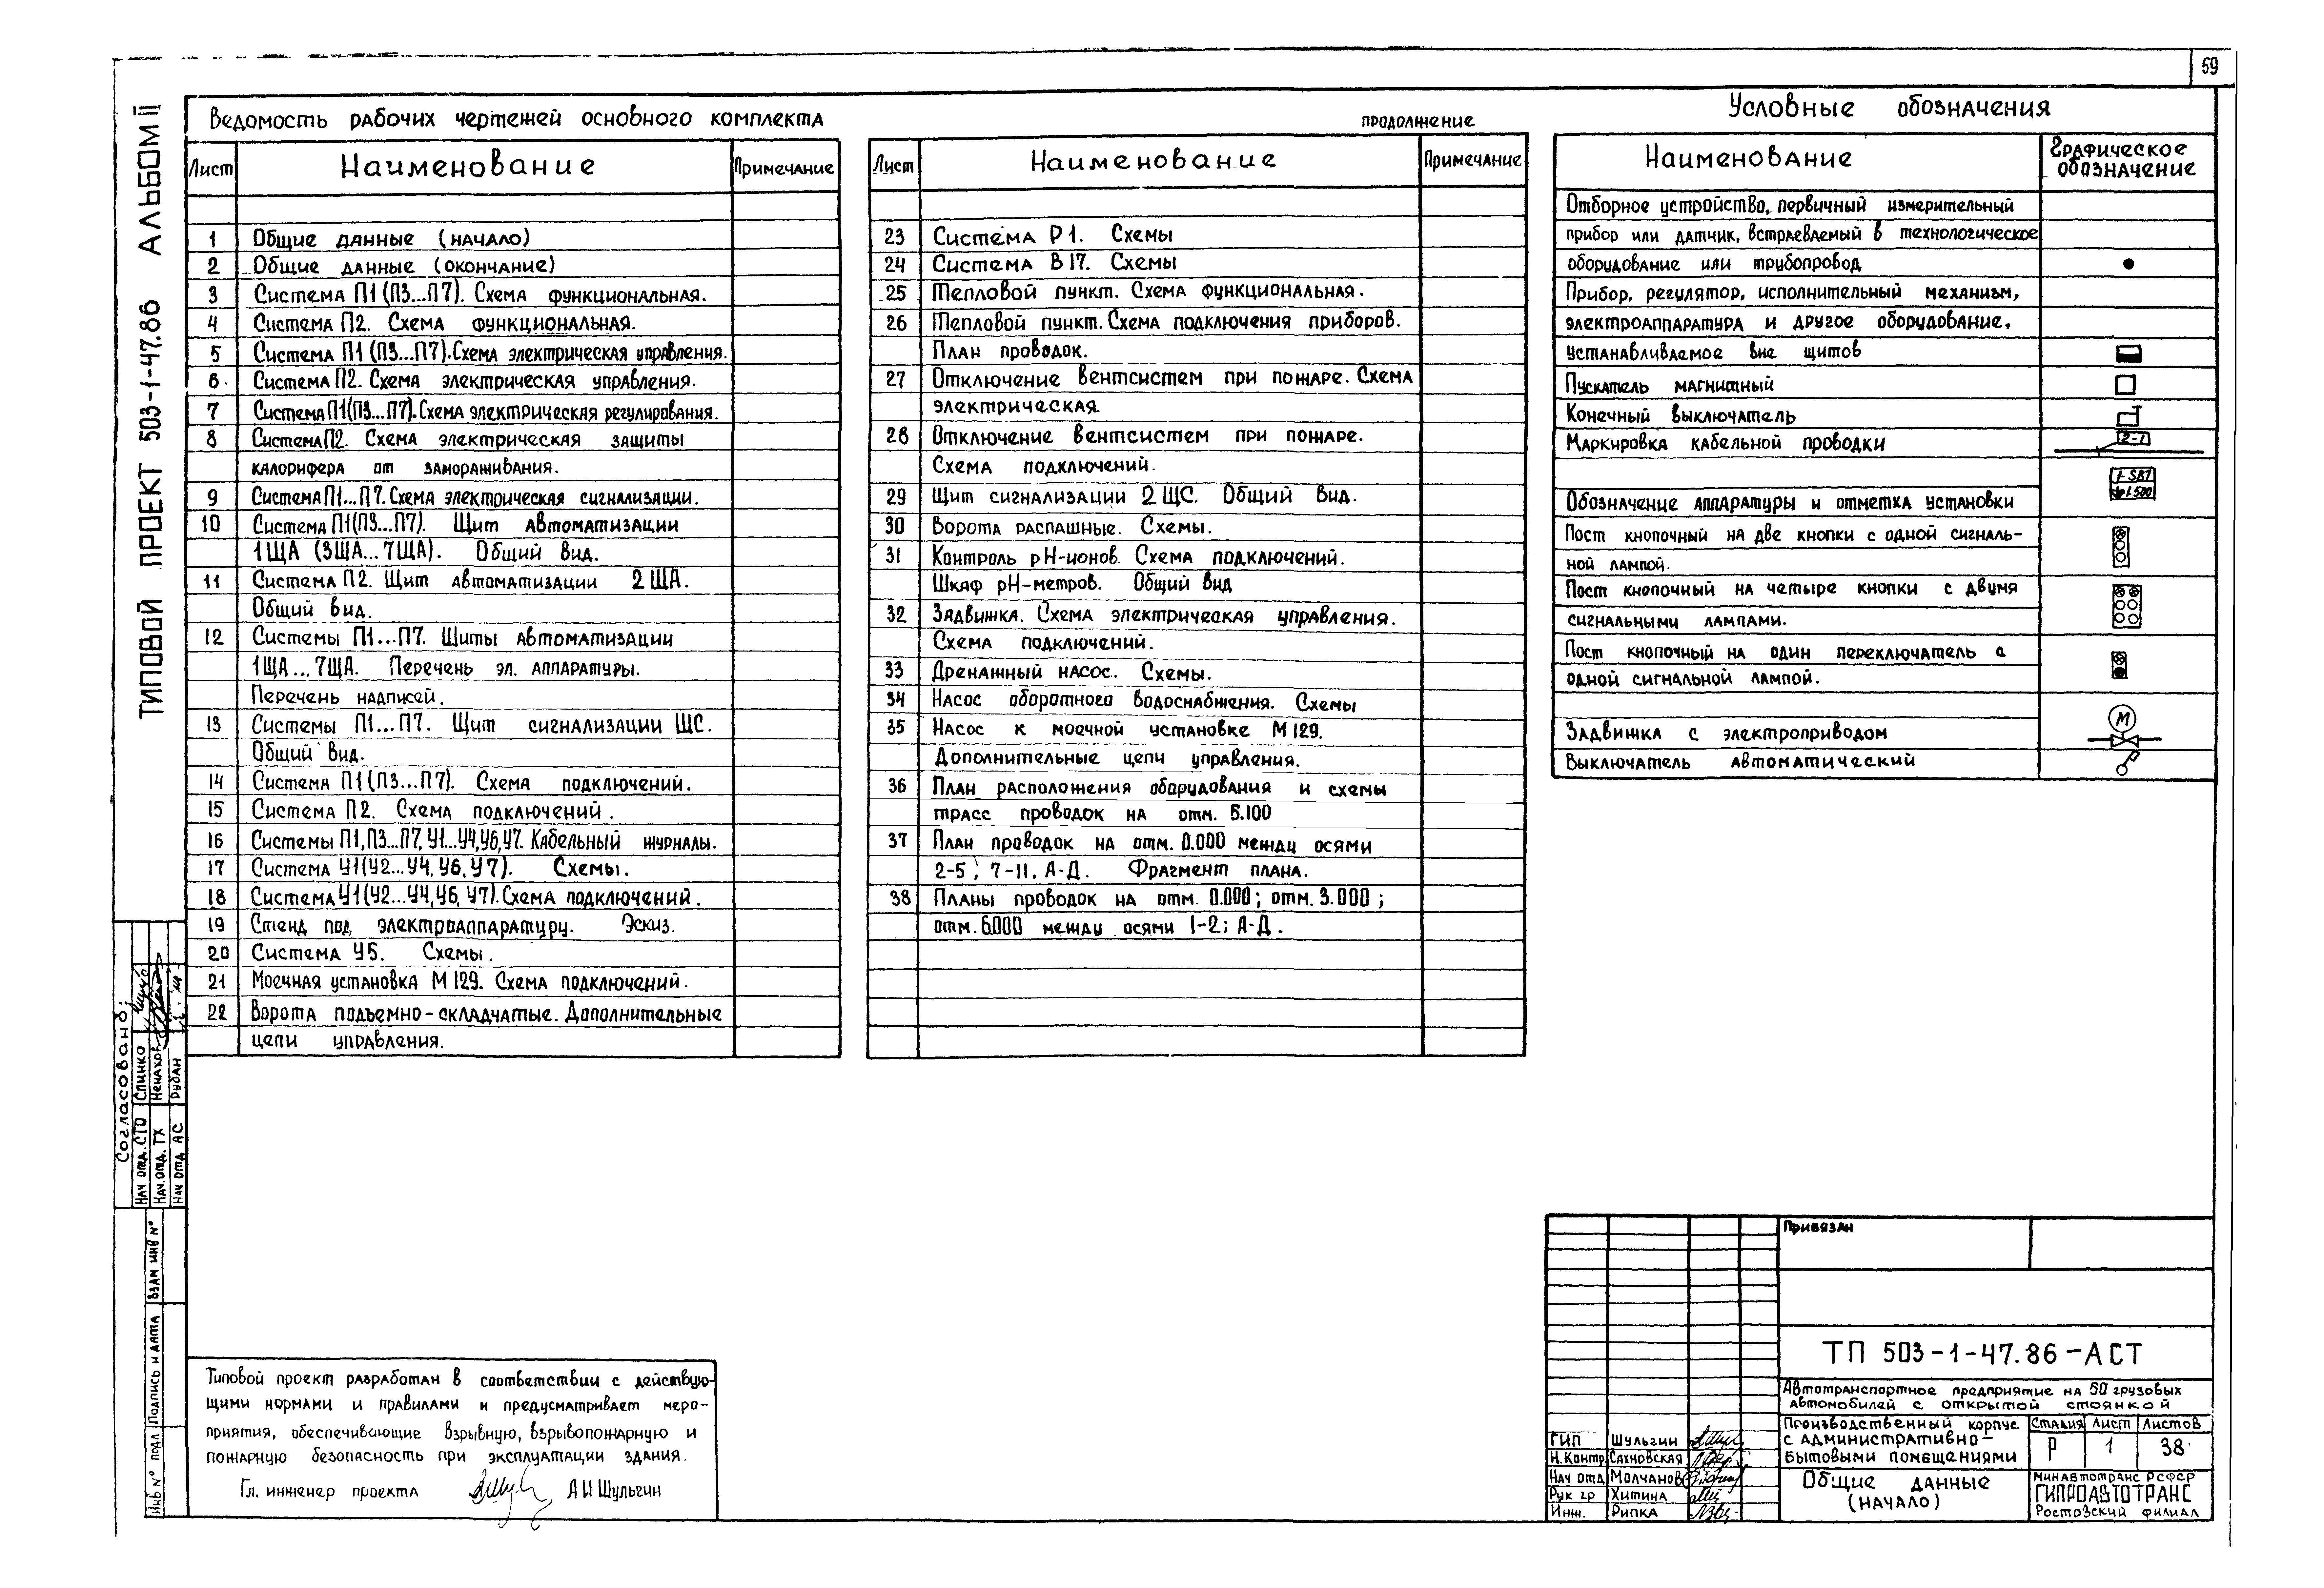 59
ТИПОВОЙ ПРОЕКТ 503-1-47.86 АЛЬБОМ III
Ведомость рабочих чертежей основного комплекта
Лист Наименование Примечание
1 Общие данные (начало)
2 Общие данные (окончание)
3 Система П1 (П3...П7). Схема функциональная.
4 Система П2. Схема функциональная.
5 Система П1 (П3...П7). Схема электрическая управления.
6 Система П2. Схема электрическая управления.
7 Система П1(П3...П7). Схема электрическая регулирования.
8 Система П2. Схема электрическая защиты
калорифера от замораживания.
9 Система П1...П7. Схема электрическая сигнализации.
10 Система П1(П3...П7). Щит автоматизации
1ЩА (3ЩА...7ЩА). Общий вид.
11 Система П2. Щит автоматизации 2ЩА.
Общий вид.
12 Системы П1...П7. Щиты автоматизации
1ЩА...7ЩА. Перечень эл. аппаратуры.
Перечень надписей.
13 Системы П1...П7. Щит сигнализации ЩС.
Общий вид.
14 Система П1(П3...П7). Схема подключений.
15 Система П2. Схема подключений.
16 Системы П1,П3...П7,У1...У4,У6,У7. Кабельный журналы.
17 Система У1(У2...У4,У6,У7). Схемы.
18 Система У1(У2...У4,У6,У7). Схема подключений.
19 Стенд под электроаппаратуру. Эскиз.
20 Система У5. Схемы.
21 Моечная установка М129. Схема подключений.
22 Ворота подъемно-складчатые. Дополнительные
цепи управления.
продолжение
Лист Наименование Примечание
23 Система Р1. Схемы
24 Система В17. Схемы
25 Тепловой пункт. Схема функциональная.
26 Тепловой пункт. Схема подключения приборов.
План проводок.
27 Отключение вентсистем при пожаре. Схема
электрическая
28 Отключение вентсистем при пожаре.
Схема подключений.
29 Щит сигнализации 2ЩС. Общий вид.
30 Ворота распашные. Схемы.
31 Контроль рН-ионов. Схема подключений.
Шкаф рН-метров. Общий вид
32 Задвижка. Схема электрическая управления.
Схема подключений.
33 Дренажный насос. Схемы.
34 Насос оборотного водоснабжения. Схемы
35 Насос к моечной установке М129.
Дополнительные цепи управления.
36 План расположения оборудования и схемы
трасс проводок на отм. 5.100
37 План проводок на отм. 0.000 между осями
2-5; 7-11, А-Д. Фрагмент плана.
38 Планы проводок на отм. 0.000; отм. 3.000;
отм. 6.000 между осями 1-2; А-Д.
Условные обозначения
Наименование Графическое
обозначение
Отборное устройство, первичный измерительный
прибор или датчик, встраеваемый в технологическое
оборудование или трубопровод
Прибор, регулятор, исполнительный механизм,
электроаппаратура и другое оборудование,
устанавливаемое вне щитов
Пускатель магнитный
Конечный выключатель
Маркировка кабельной проводки 2-1
Обозначение аппаратуры и отметка установки
Пост кнопочный на две кнопки с одной сигналь-
ной лампой.
Пост кнопочный на четыре кнопки с двумя
сигнальными лампами.
Пост кнопочный на один переключатель с
одной сигнальной лампой.
Задвижка с электроприводом М
Выключатель автоматический
Согласовано:
Нач отд. СТО Слинко
Нач. отд. ТХ
Нач отд АС Рубан
Взам инв №
Подпись и дата
Инв № подл
Типовой проект разработан в соответствии с действую-
щими нормами и правилами и предусматривает меро-
приятия, обеспечивающие взрывную, взрывопожарную и
пожарную безопасность при эксплуатации здания.
Гл. инженер проекта А И Шульгин
Привязан
ТП 503-1-47.86-АСТ
Автотранспортное предприятие на 50 грузовых
автомобилей с открытой стоянкой
Производственный корпус
с административно-
бытовыми помещениями
Стадия Лист Листов
Р 1 38
Общие данные
(начало)
Минавтотранс РСФСР
ГИПРОАВТОТРАНС
Ростовский филиал
ГИП Шульгин
Н.Контр. Сахновская
Нач отд Молчанов
Рук гр Хитина
Инж. Рипка